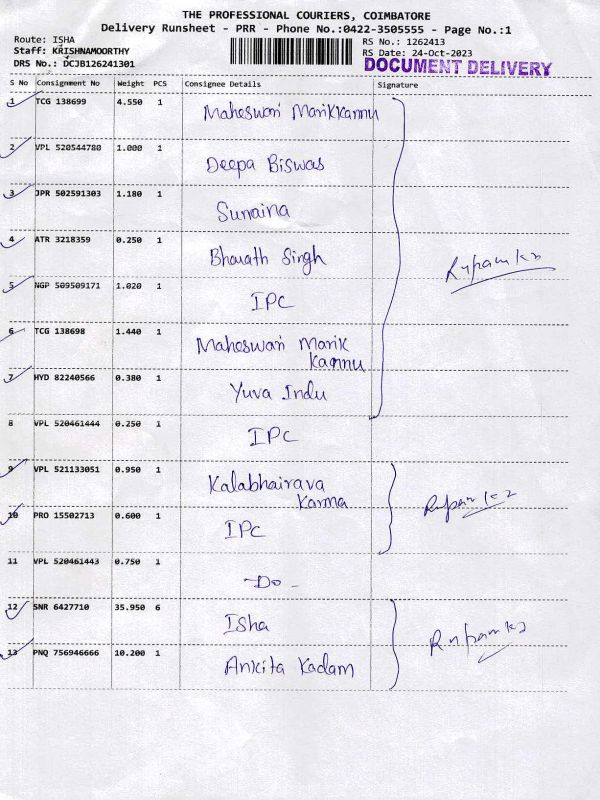 THE PROFESSIONAL COURIERS, COIMBATORE
Delivery Runsheet - PRR - Phone No.:0422-3505555 - Page No.:1
Route: ISHA
Staff: KRISHNAMOORTHY
DRS No.: DCJB126241301
RS No.: 1262413
RS Date: 24-Oct-2023
DOCUMENT DELIVERY
S No Consignment No Weight PCS Consignee Details Signature
1 TCG 138699 4.550 1 Maheswari Marikkannu
2 VPL 520544780 1.000 1 Deepa Biswas
3 JPR 502591303 1.180 1 Sunaina
4 ATR 3218359 0.250 1 Bharath Singh
5 NGP 509509171 1.020 1 IPC
6 TCG 138698 1.440 1 Maheswari Marik
Kannu
7 HYD 82240566 0.380 1 Yuva Indu
8 VPL 520461444 0.250 1 IPC
9 VPL 521133051 0.950 1 Kalabhairava
Karma
10 PRO 15502713 0.600 1 IPC
11 VPL 520461443 0.750 1 -Do-
12 SNR 6427710 35.950 6 Isha
13 PNQ 756946666 10.200 1 Ankita Kadam